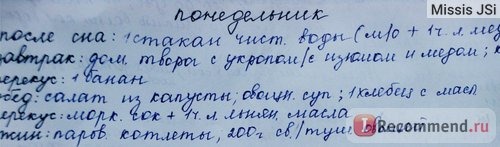 Missis JSi
понедельник
после сна: 1 стакан чист. воды (м/о + 1 ч. л. мед
автрак: дом. творог с укропом/с изюмом и медом; к
ерекус: 1 банан
бед: салат из капусты; овощн. суп; 1 хлебец с масл
ерекус: морк. сок + 1 ч. л. льнян. масла
жин: паров. котлеты, 200г св./туш.
I Recommend.ru